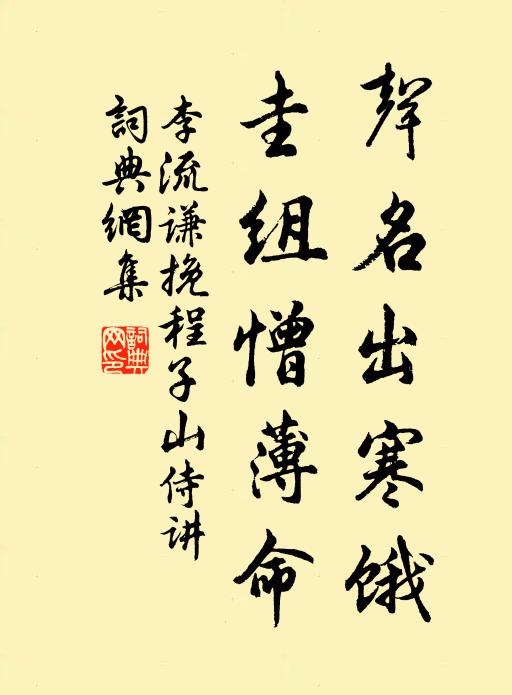 声名出寒饿
圭组憎薄命
李流谦挽程子山侍讲
詞典網集
詞典网印